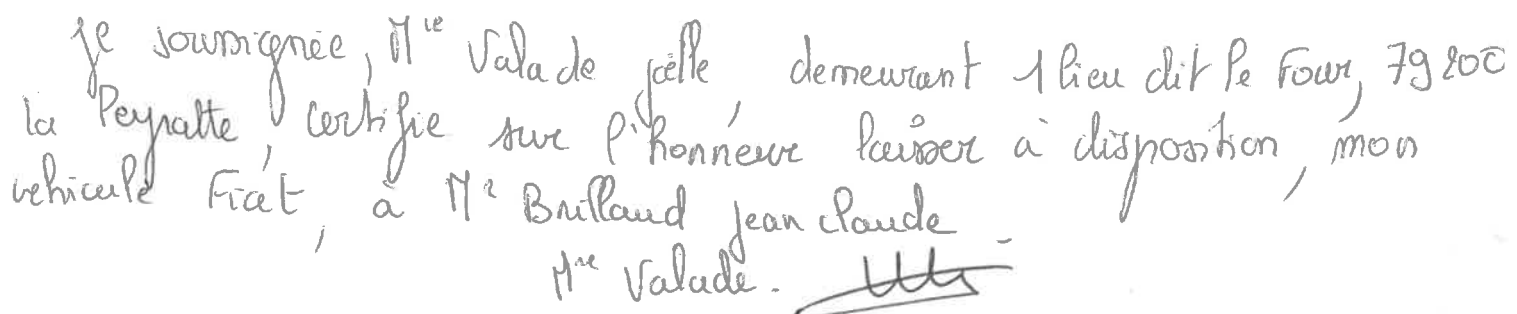 Je soussignée, Mme Valade joëlle, demeurant 1 lieu dit le Four, 79200
la Peyratte, certifie sur l'honneur laisser à disposition, mon
vehicule Fiat, à Mr Brillaud jean claude
Mme Valade.